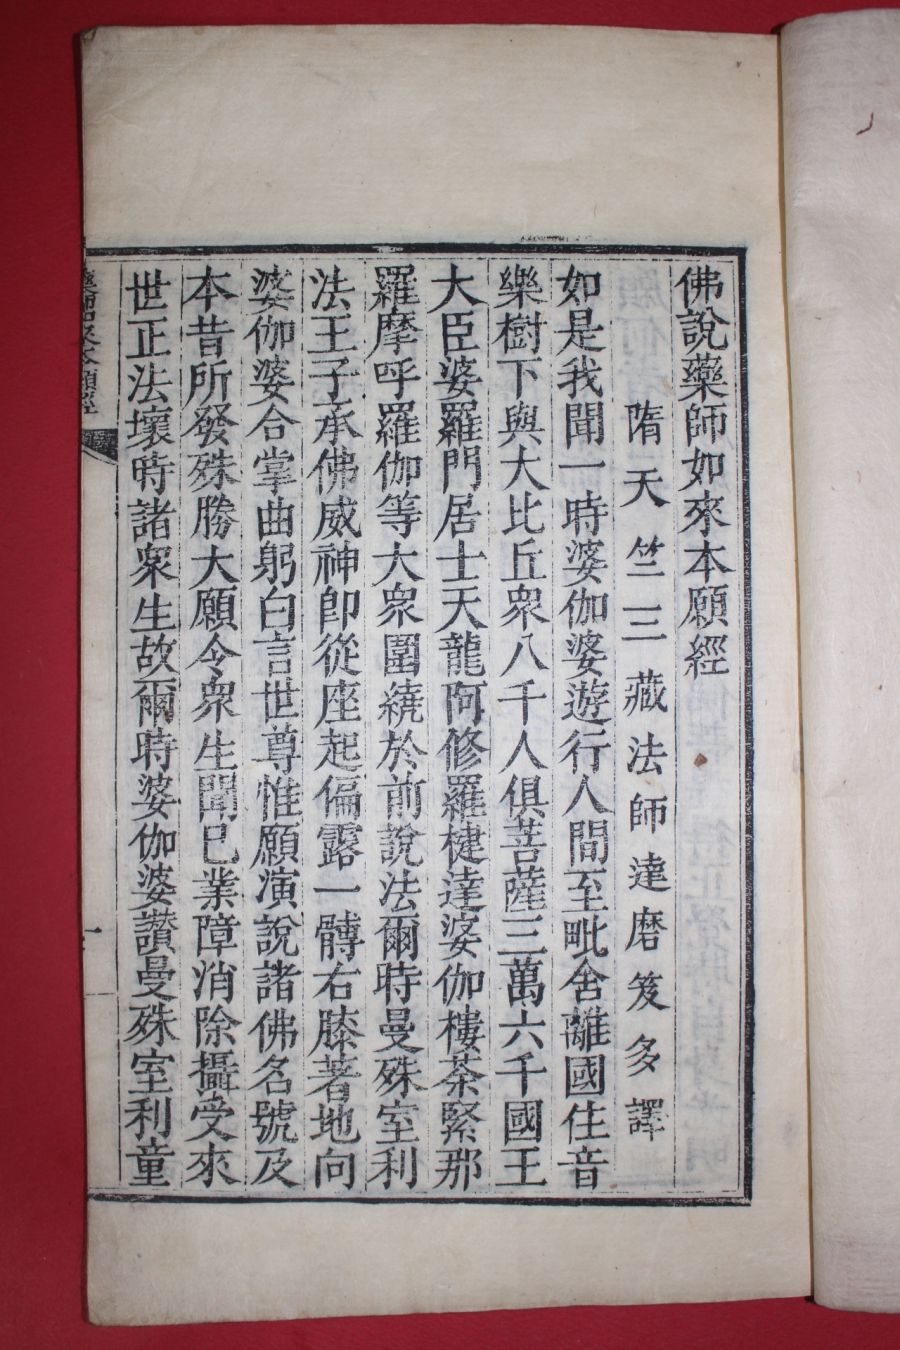 佛說藥師如來本願經
隋天竺三藏法師達磨笈多譯
如是我聞一時婆伽婆遊行人間至毗舍離國住音
樂樹下與大比丘衆八千人俱菩薩三萬六千國王
大臣婆羅門居士天龍阿修羅楗達婆伽樓茶緊那
羅摩呼羅伽等大衆圍繞於前說法爾時曼殊室利
法王子承佛威神即從座起偏露一髆右膝著地向
婆伽婆合掌曲躬白言世尊惟願演說諸佛名號及
本昔所發殊勝大願令衆生聞已業障消除攝受來
世正法壞時諸衆生故爾時婆伽婆讚曼殊室利童
藥師如來本願經
一